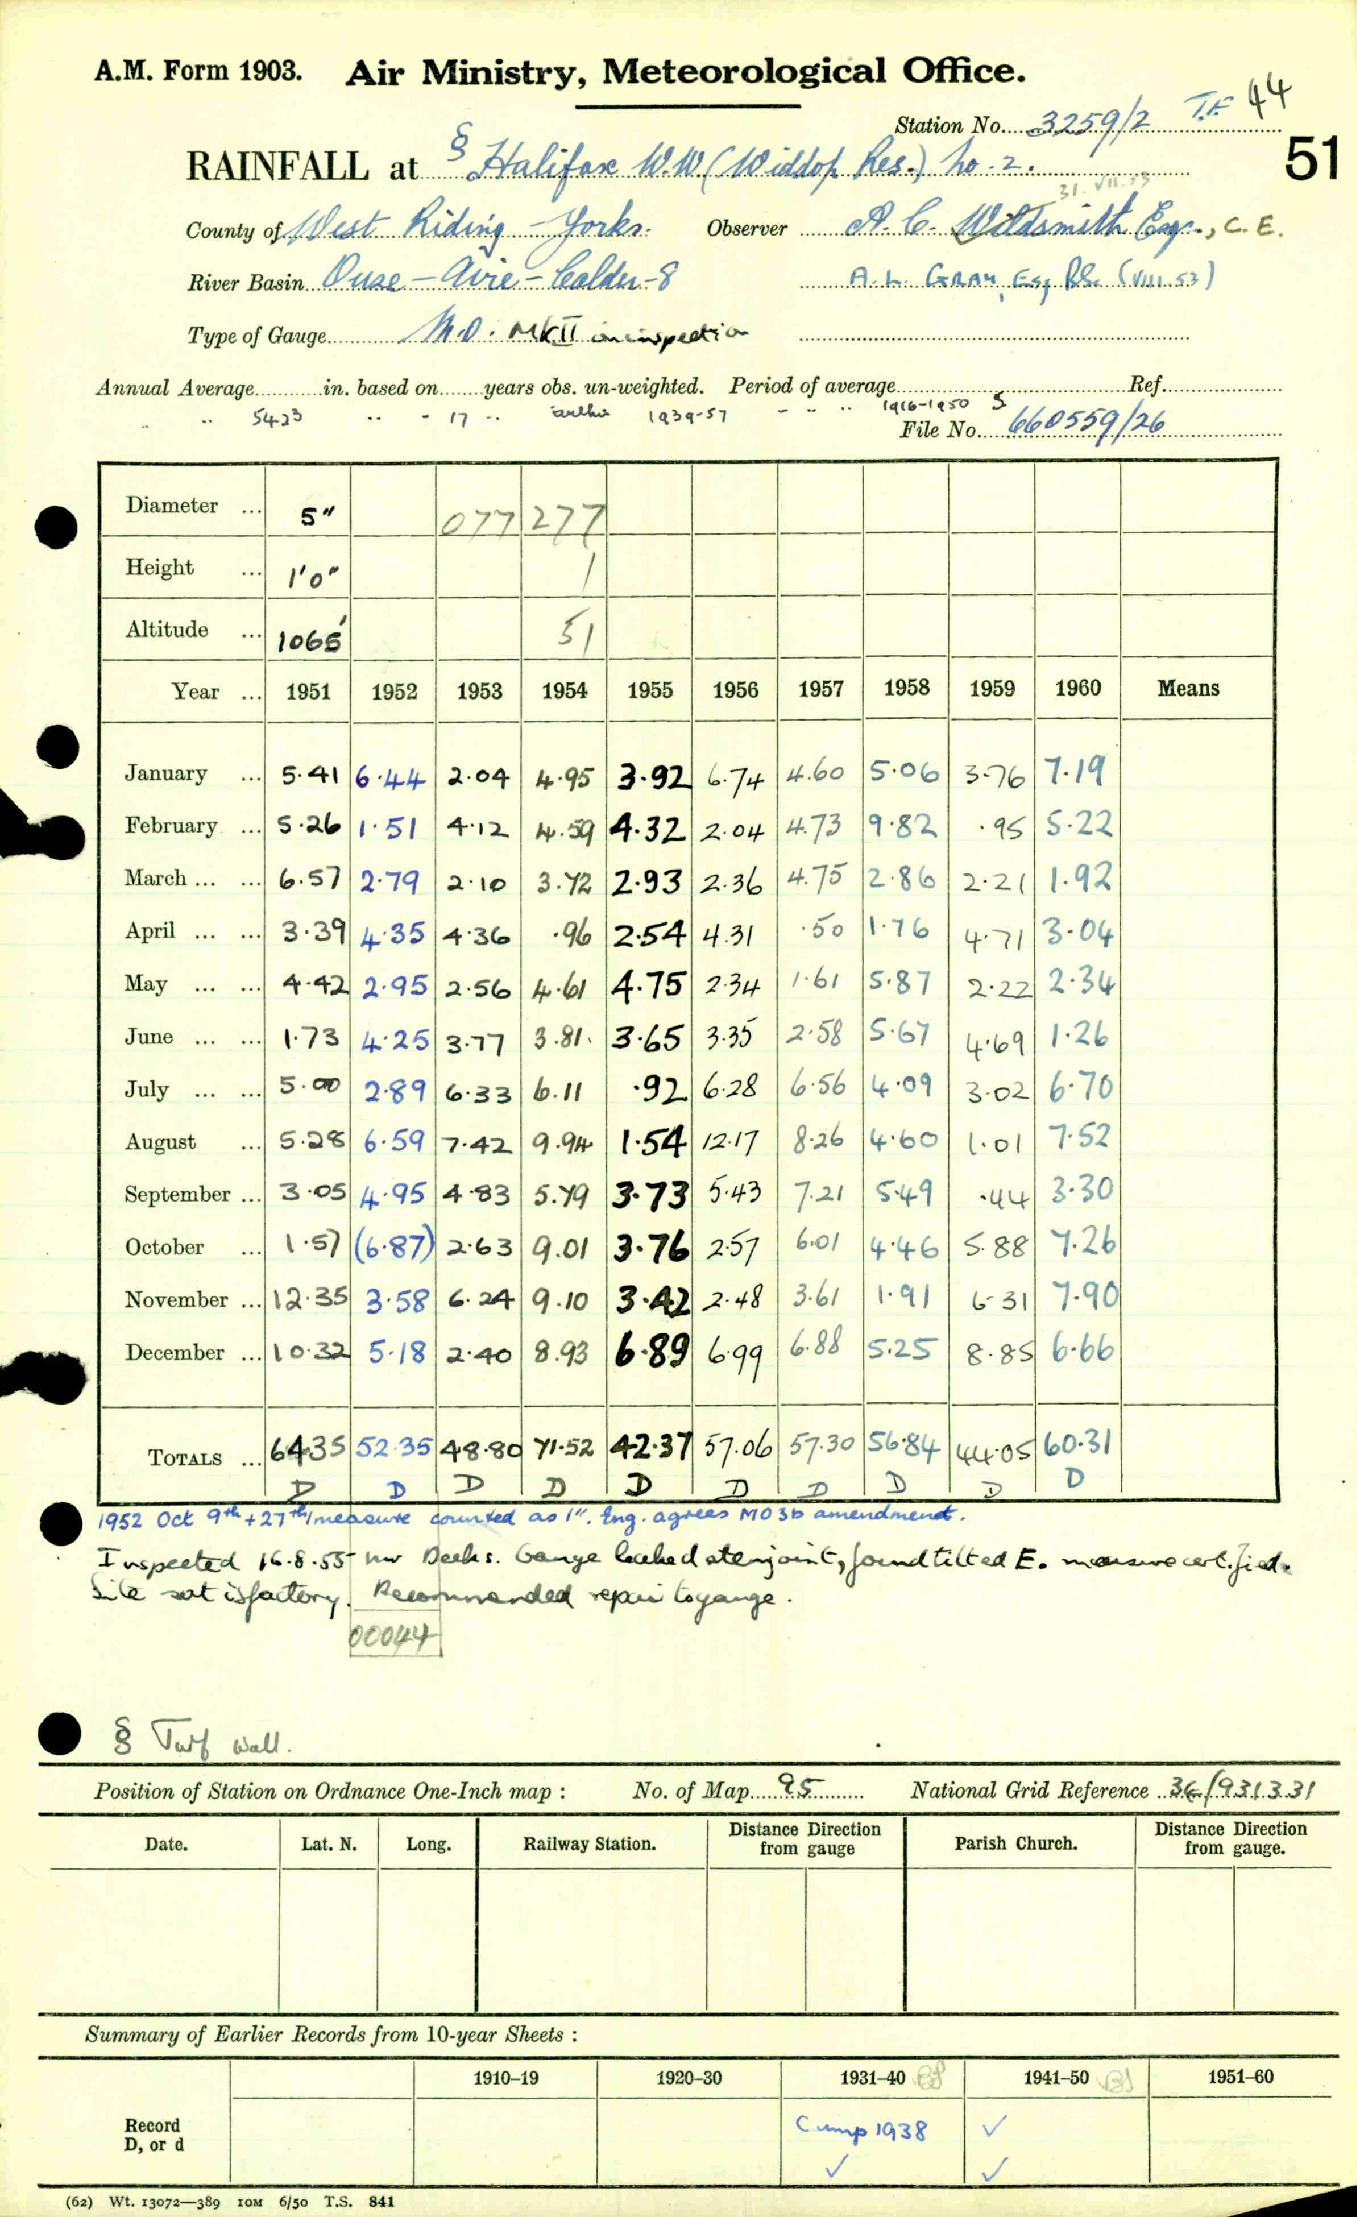 A.M. Form 1903. Air Ministry, Meteorological Office.
Station No. 3259/2 T.F. 44
RAINFALL at § Halifax W.W. (Widdop Res.) No. 2. 51
31.VII.53
County of West Riding - Yorks. Observer A. C. Wildsmith Esq., C.E.
River Basin Ouse - Aire - Calder - 8 A. L. GRAY, Esq, BSc. (VIII.53)
Type of Gauge M.O. MK II on inspection
Annual Average in. based on years obs. un-weighted. Period of average Ref.
" " 5423 " " 17 " 1939-57 " " " 1916-1950 S
File No. 660559/26
Diameter ... 5" 077 277
Height ... 1'0" 1
Altitude ... 1065' 51
Year ... 1951 1952 1953 1954 1955 1956 1957 1958 1959 1960 Means
January ... 5.41 6.44 2.04 4.95 3.92 6.74 4.60 5.06 3.76 7.19
February ... 5.26 1.51 4.12 4.59 4.32 2.04 4.73 9.82 .95 5.22
March ... ... 6.57 2.79 2.10 3.72 2.93 2.36 4.75 2.86 2.21 1.92
April ... ... 3.39 4.35 4.36 .96 2.54 4.31 .50 1.76 4.71 3.04
May ... ... 4.42 2.95 2.56 4.61 4.75 2.34 1.61 5.87 2.22 2.34
June ... ... 1.73 4.25 3.77 3.81 3.65 3.35 2.58 5.67 4.69 1.26
July ... ... 5.00 2.89 6.33 6.11 .92 6.28 6.56 4.09 3.02 6.70
August ... 5.28 6.59 7.42 9.94 1.54 12.17 8.26 4.60 1.01 7.52
September ... 3.05 4.95 4.83 5.79 3.73 5.43 7.21 5.49 .44 3.30
October ... 1.57 (6.87) 2.63 9.01 3.76 2.57 6.01 4.46 5.88 7.26
November ... 12.35 3.58 6.24 9.10 3.42 2.48 3.61 1.91 6.31 7.90
December ... 10.32 5.18 2.40 8.93 6.89 6.99 6.88 5.25 8.85 6.66
TOTALS ... 64.35 52.35 48.80 71.52 42.37 57.06 57.30 56.84 44.05 60.31
D D D D D D D D D D
1952 Oct 9th + 27th measure counted as 1". Eng. agrees MO3b amendment.
Inspected 16.8.55 Mr Deeks. Gauge leaked at enjoint, found tilted E. measure certified.
Site satisfactory. Recommended repair to gauge.
00044
§ Turf wall.
Position of Station on Ordnance One-Inch map : No. of Map 95 National Grid Reference 34/931331
Date. Lat. N. Long. Railway Station. Distance Direction from gauge Parish Church. Distance Direction from gauge.
Summary of Earlier Records from 10-year Sheets :
1910–19 1920–30 1931–40 1941–50 1951–60
Record Cump 1938 ✓
D, or d ✓ ✓
(62) Wt. 13072—389 10M 6/50 T.S. 841